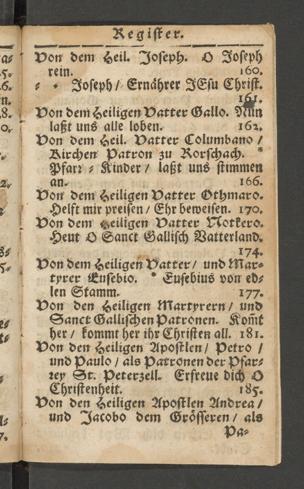 Register.
Von dem Heil. Joseph. O Joseph
rein. 160.
- - Joseph/ Ernährer JEsu Christ.
161.
Von dem Heiligen Vatter Gallo. Nun
laßt uns alle loben. 162.
Von dem Heil. Vatter Columbano/
Kirchen Patron zu Rorschach.
Pfarr-Kinder/ laßt uns stimmen
an. 166.
Von dem Heiligen Vatter Othmaro.
Helft mir preisen/ Ehr beweisen. 170.
Von dem Heiligen Vatter Notkero.
Heut O Sanct Gallisch Vatterland.
174.
Von dem Heiligen Vatter/ und Mar-
tyrer Eusebio. Eusebius von ed-
len Stamm. 177.
Von den Heiligen Martyrern/ und
Sanct Gallischen Patronen. Komt
her/ kommt her ihr Christen all. 181.
Von den Heiligen Apostlen/ Petro/
und Paulo/ als Patronen der Pfar-
rey St. Peterzell. Erfreue dich O
Christenheit. 185.
Von den Heiligen Apostlen Andrea/
und Jacobo dem Grösseren/ als
Pa-